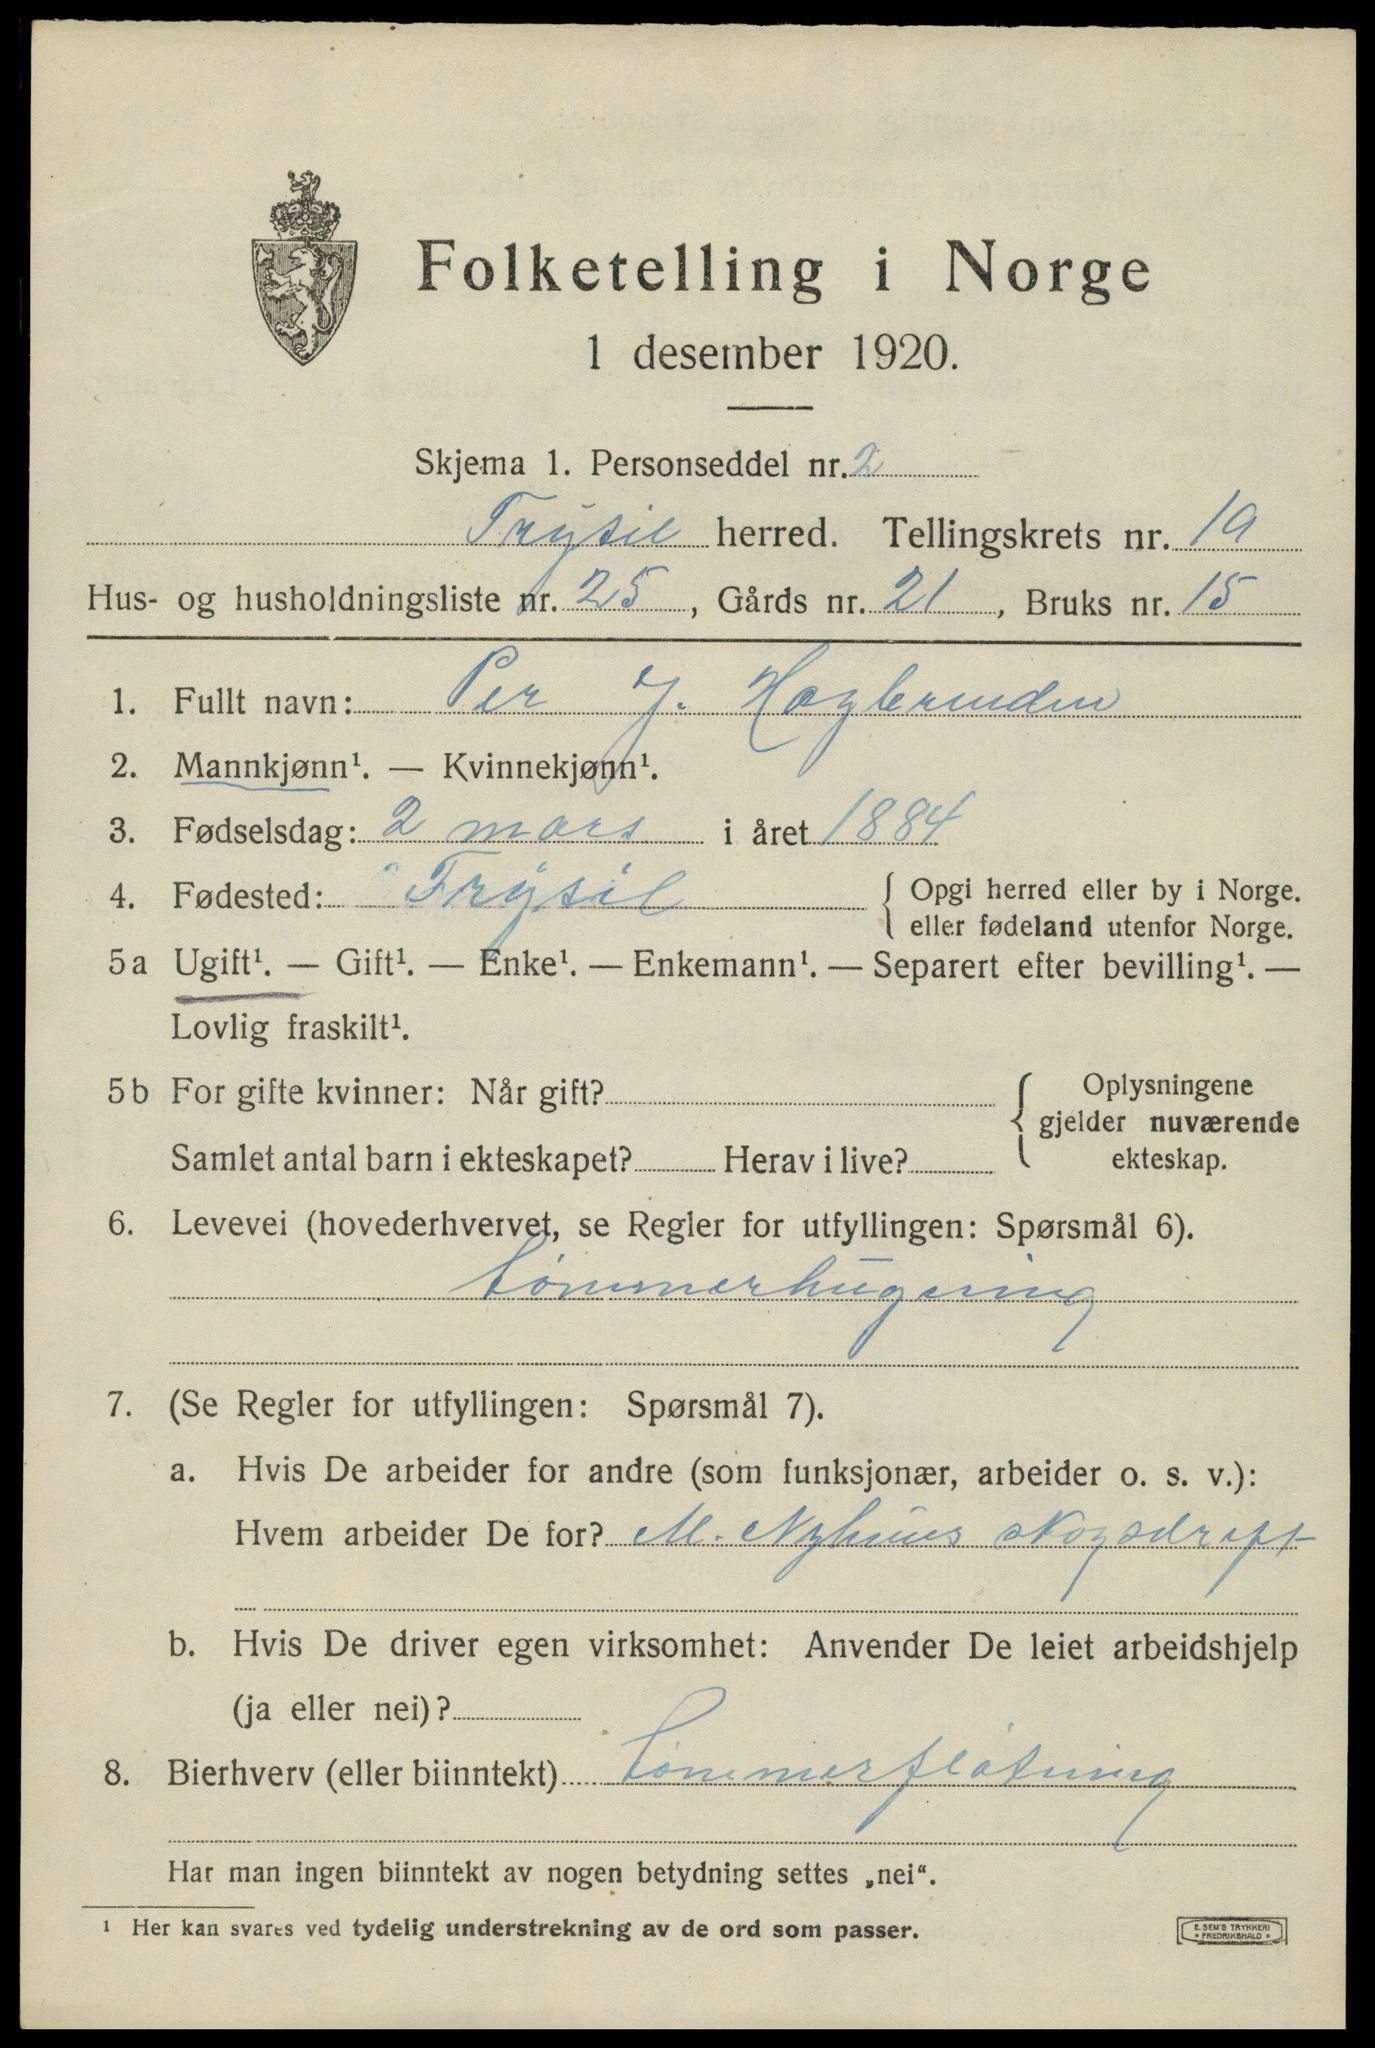 Folketelling i Norge
1 desember 1920.
Skjema 1. Personseddel nr. 2
Trysil herred. Tellingskrets nr. 19
Hus- og husholdningsliste nr. 25, Gårds nr. 21, Bruks nr. 15
1. Fullt navn: Per J. Hogbrenden
2. Mannkjønn¹. — Kvinnekjønn¹.
3. Fødselsdag: 2 mars i året 1884
4. Fødested: Trysil { Opgi herred eller by i Norge.
eller fødeland utenfor Norge.
5a Ugift¹. — Gift¹. — Enke¹. — Enkemann¹. — Separert efter bevilling¹. —
Lovlig fraskilt¹.
5b For gifte kvinner: Når gift?
Samlet antal barn i ekteskapet? Herav i live?
{ Oplysningene
gjelder nuværende
ekteskap.
6. Levevei (hovederhvervet, se Regler for utfyllingen: Spørsmål 6).
tømmerhugning
7. (Se Regler for utfyllingen: Spørsmål 7).
a. Hvis De arbeider for andre (som funksjonær, arbeider o. s. v.):
Hvem arbeider De for? M. Nyhuus skogsdrift
b. Hvis De driver egen virksomhet: Anvender De leiet arbeidshjelp
(ja eller nei)?
8. Bierhverv (eller biinntekt) tømmerfløtning
Har man ingen biinntekt av nogen betydning settes „nei“.
¹ Her kan svares ved tydelig understrekning av de ord som passer.
E. SEM'S TRYKKERI
* FREDRIKSHALD *